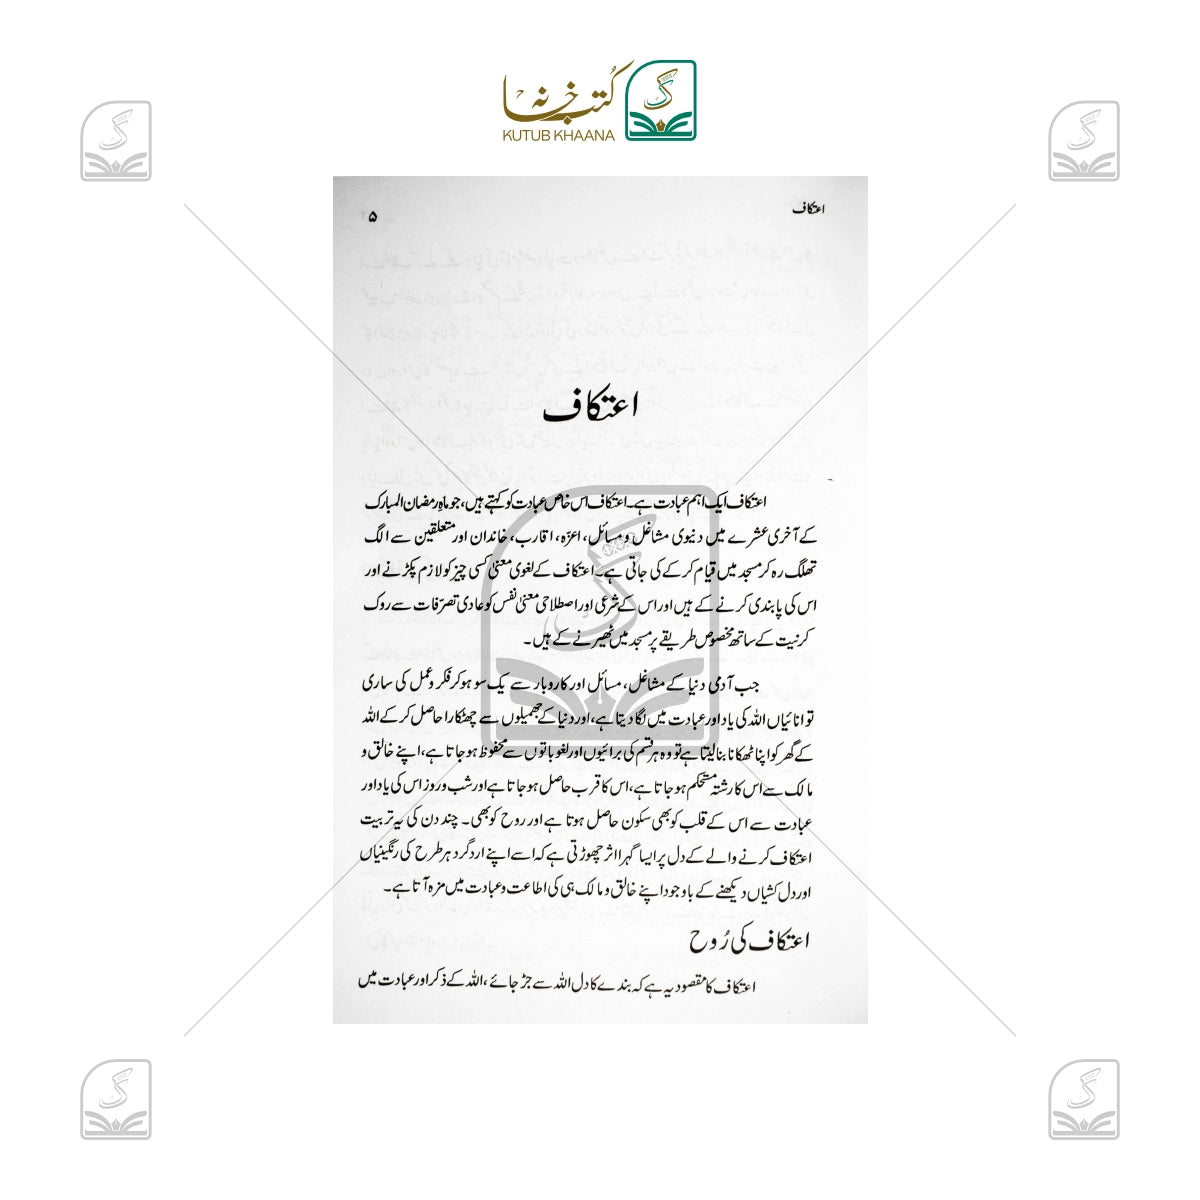 کتب خانہ
KUTUB KHAANA
اعتکاف
۵
اعتکاف
اعتکاف ایک اہم عبادت ہے۔ اعتکاف اس خاص عبادت کو کہتے ہیں، جو ماہِ رمضان المبارک
کے آخری عشرے میں دنیوی مشاغل و مسائل، اعزّہ، اقارب، خاندان اور متعلقین سے الگ
تھلگ رہ کر مسجد میں قیام کر کے کی جاتی ہے۔ اعتکاف کے لغوی معنیٰ کسی چیز کو لازم پکڑنے اور
اس کی پابندی کرنے کے ہیں اور اس کے شرعی اور اصطلاحی معنیٰ نفس کو عادی تصرّفات سے روک
کر نیت کے ساتھ مخصوص طریقے پر مسجد میں ٹھیرنے کے ہیں۔
جب آدمی دنیا کے مشاغل، مسائل اور کاروبار سے یک سو ہو کر فکر و عمل کی ساری
توانائیاں اللہ کی یاد اور عبادت میں لگا دیتا ہے، اور دنیا کے جھمیلوں سے چھٹکارا حاصل کر کے اللہ
کے گھر کو اپنا ٹھکانا بنا لیتا ہے تو وہ ہر قسم کی برائیوں اور لغو باتوں سے محفوظ ہو جاتا ہے، اپنے خالق و
مالک سے اس کا رشتہ مستحکم ہو جاتا ہے، اس کا قرب حاصل ہو جاتا ہے اور شب و روز اس کی یاد اور
عبادت سے اس کے قلب کو بھی سکون حاصل ہوتا ہے اور روح کو بھی۔ چند دن کی یہ تربیت
اعتکاف کرنے والے کے دل پر ایسا گہرا اثر چھوڑتی ہے کہ اسے اپنے ارد گرد ہر طرح کی رنگینیاں
اور دل کشیاں دیکھنے کے باوجود اپنے خالق و مالک ہی کی اطاعت و عبادت میں مزہ آتا ہے۔
اعتکاف کی رُوح
اعتکاف کا مقصود یہ ہے کہ بندے کا دل اللہ سے جڑ جائے، اللہ کے ذکر اور عبادت میں